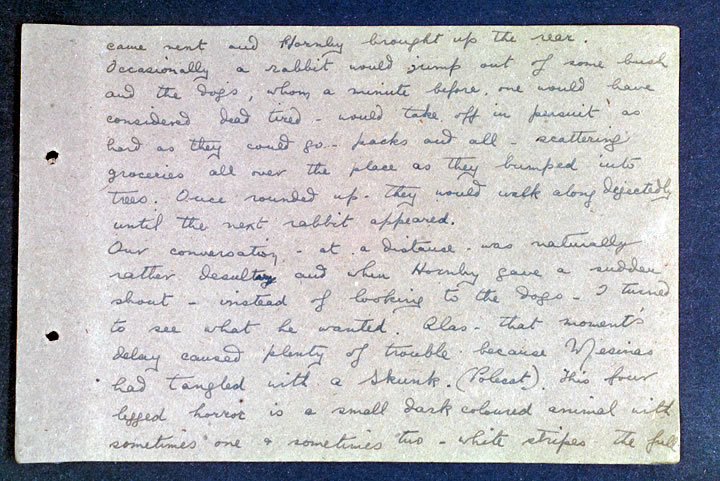 came next and Hornby brought up the rear.
Occasionally a rabbit would jump out of some bush
and the dogs, whom a minute before, one would have
considered dead tired - would take off in persuit as
hard as they could go - packs and all - scattering
groceries all over the place as they bumped into
trees. Once rounded up - they would walk along dejectedly
until the next rabbit appeared.
Our conversation - at a distance - was naturally
rather desultory and when Hornby gave a sudden
shout - instead of looking to the dogs - I turned
to see what he wanted. Alas - that moment's
delay caused plenty of trouble because Whesinas
had tangled with a Skunk. (Polecat). This four
legged horror is a small dark coloured animal with
sometimes one & sometimes two - white stripes the full